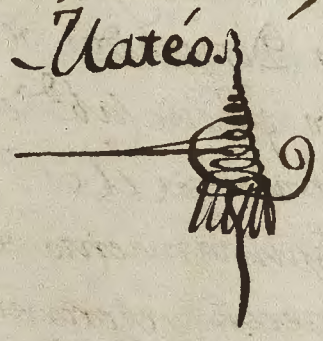 Matéos